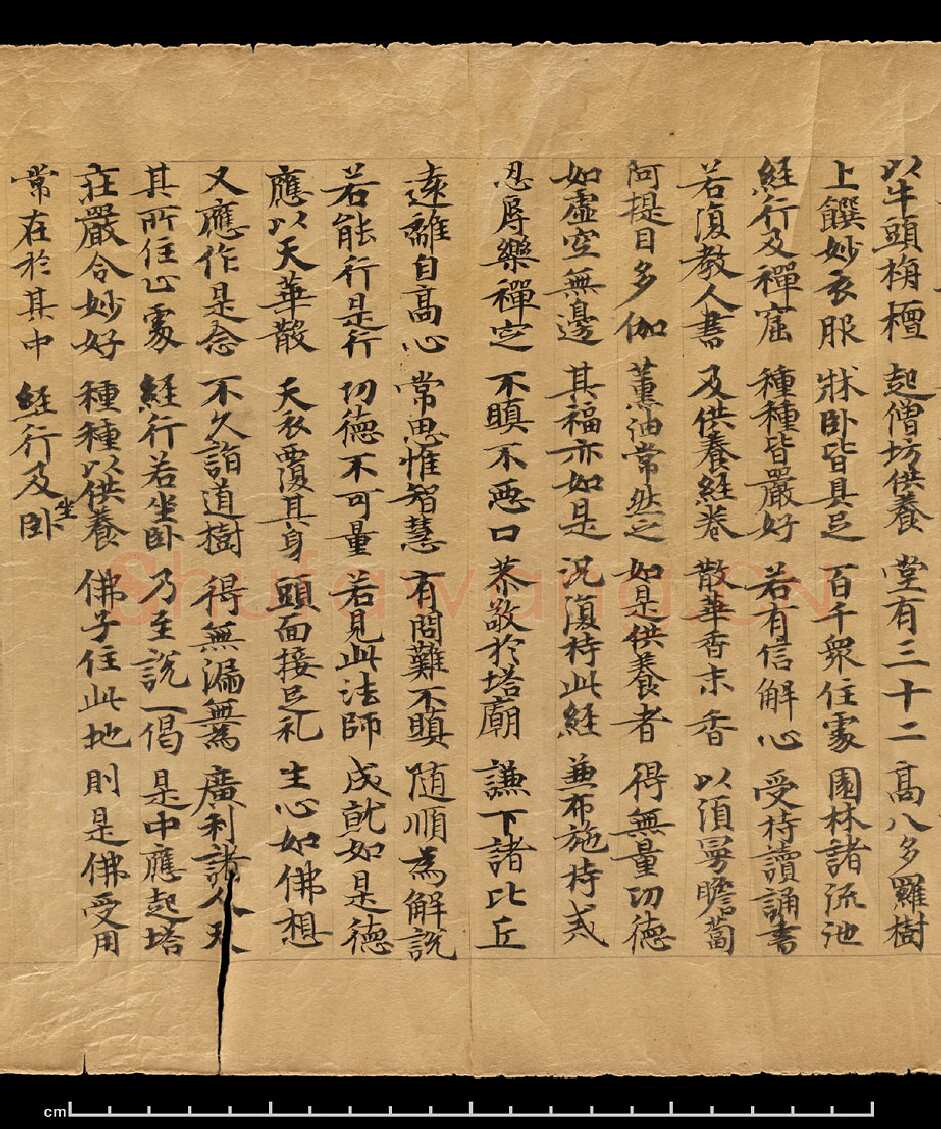 以牛頭栴檀 起僧坊供養 堂有三十二 高八多羅樹
上饌妙衣服 牀卧皆具足 百千眾住處 園林諸流池
經行及禪窟 種種皆嚴好 若有信解心 受持讀誦書
若復教人書 及供養經卷 散華香末香 以須曼瞻蔔
阿提目多伽 薰油常然之 如是供養者 得無量功德
如虛空無邊 其福亦如是 況復持此經 兼布施持戒
忍辱樂禪定 不瞋不惡口 恭敬於塔廟 謙下諸比丘
遠離自高心 常思惟智慧 有問難不瞋 随順為解說
若能行是行 功德不可量 若見此法師 成就如是德
應以天華散 天衣覆其身 頭面接足礼 生心如佛想
又應作是念 不久詣道樹 得無漏無為 廣利諸人天
其所住止處 經行若坐卧 乃至說一偈 是中應起塔
莊嚴令妙好 種種以供養 佛子住此地 則是佛受用
常在於其中 經行及坐卧
Shufawang.CN